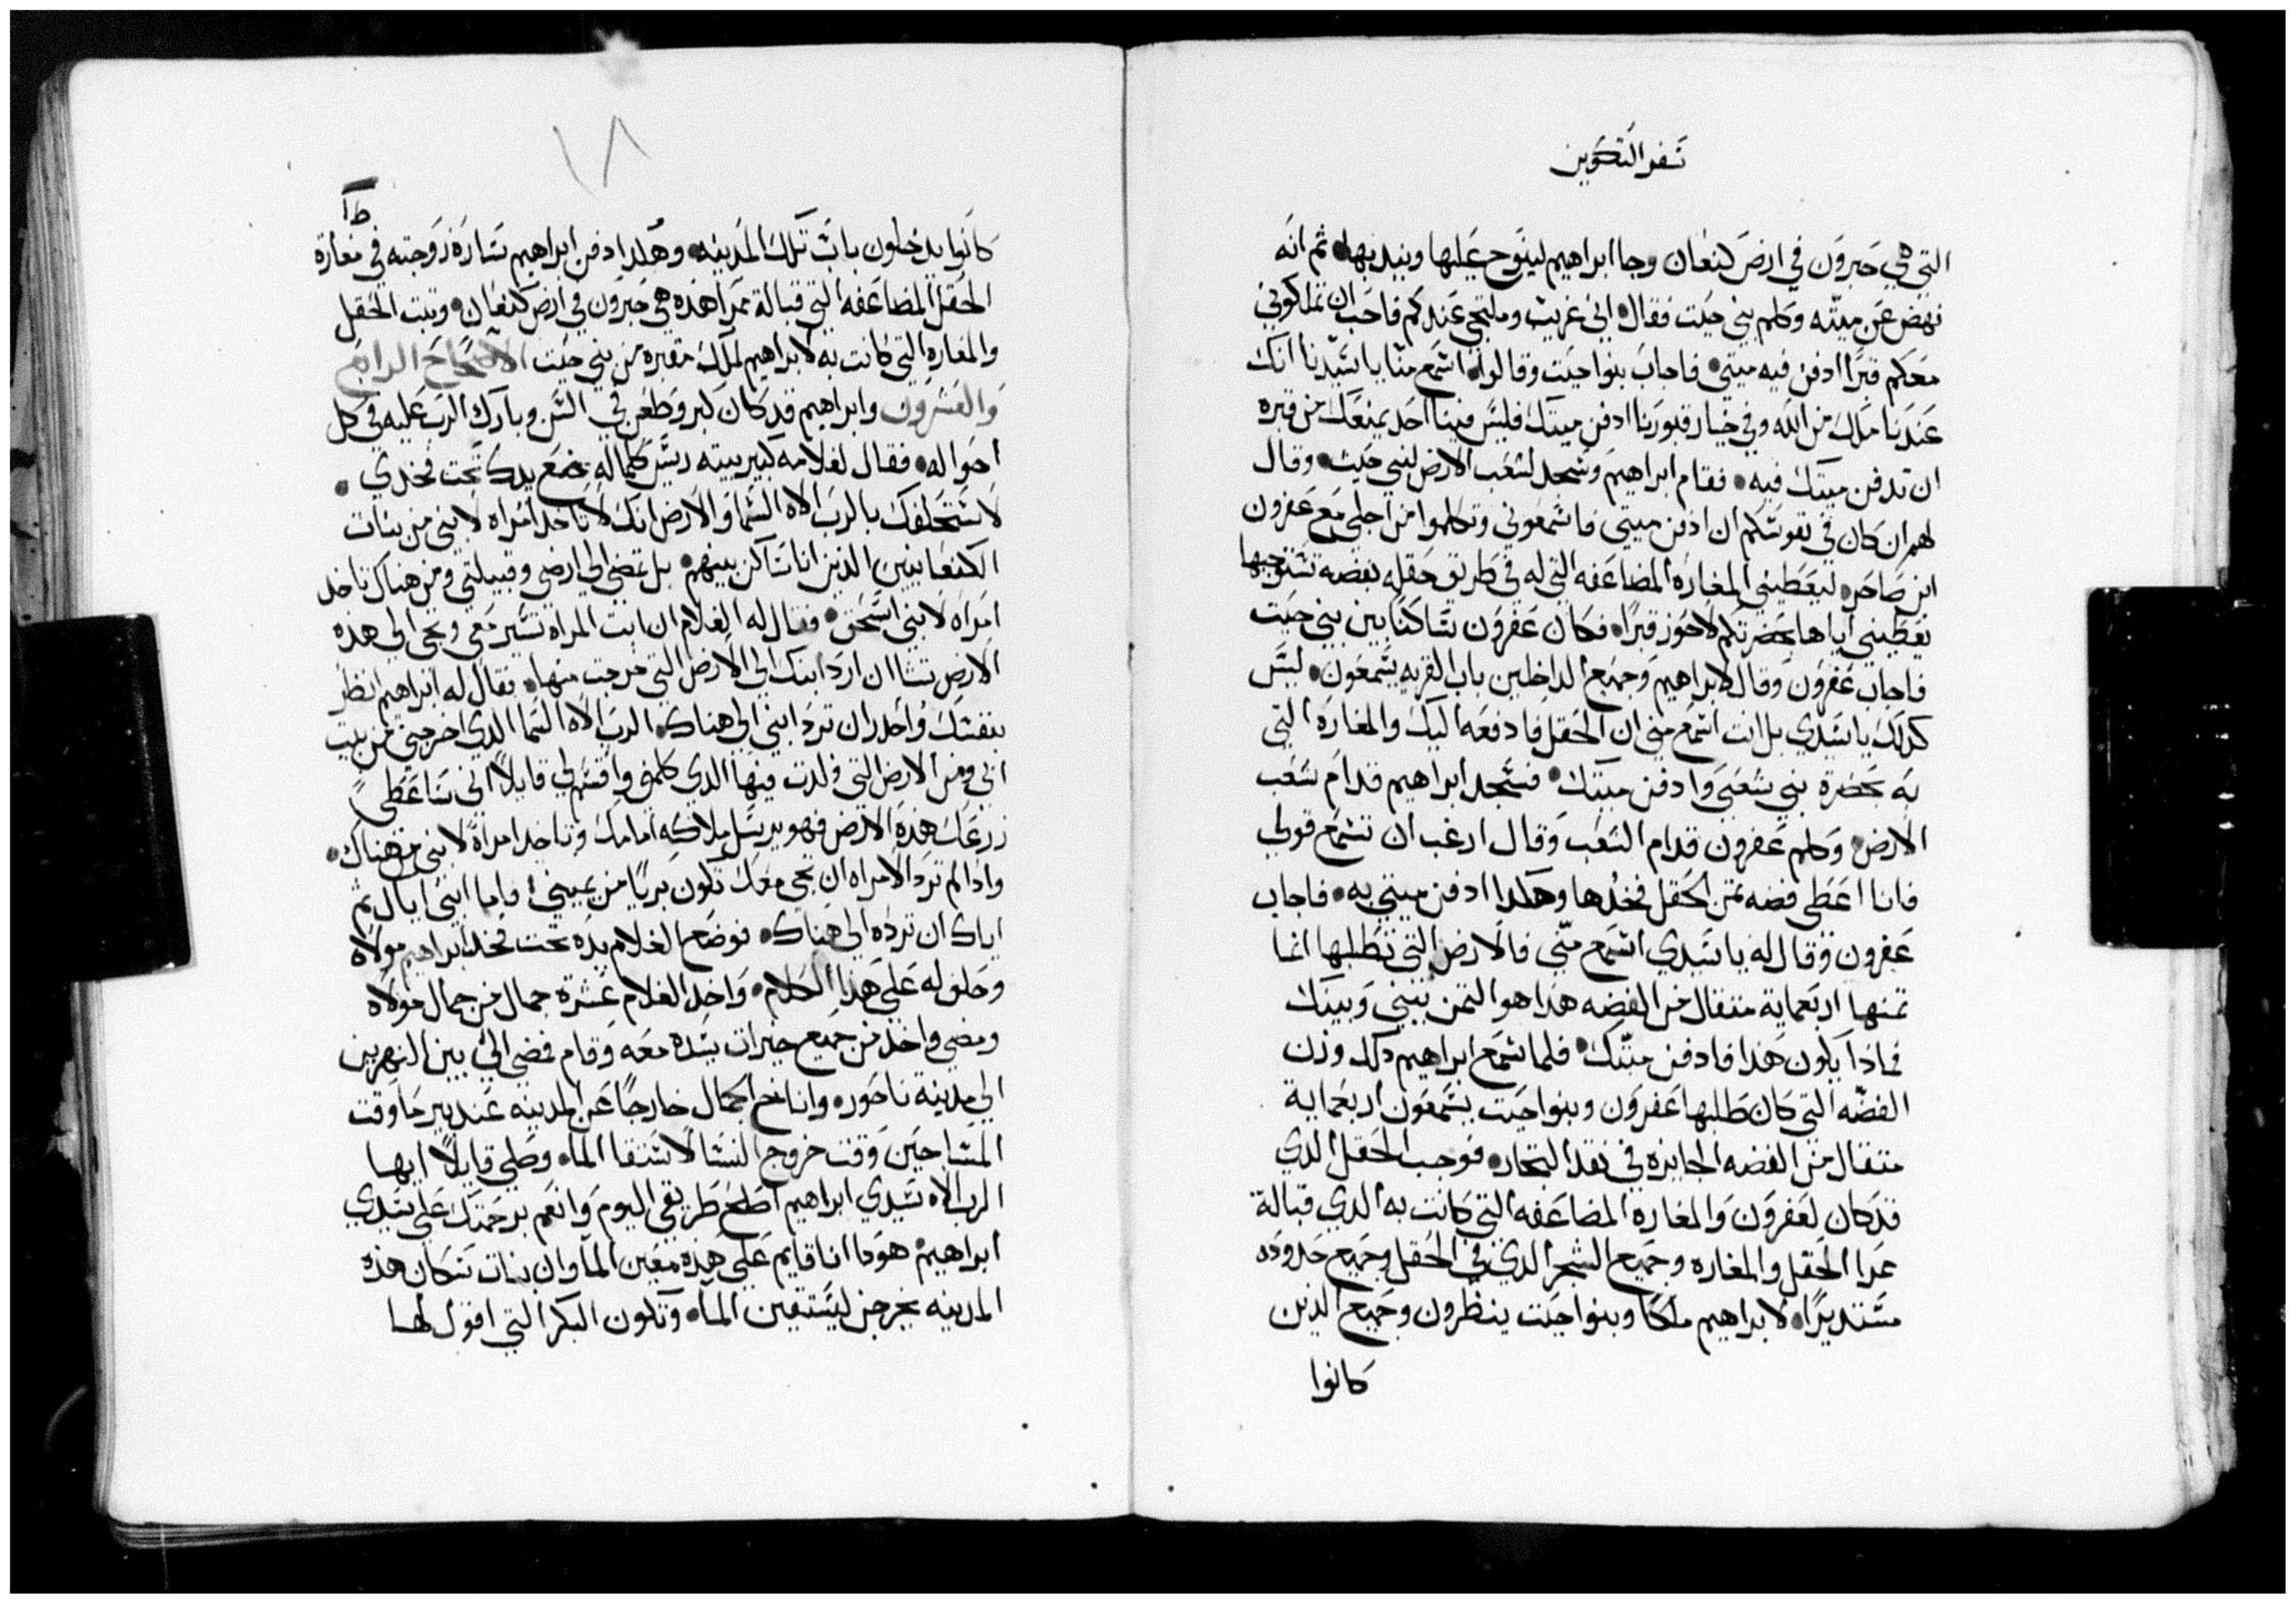 سفر التكوين
التي هي حبرون في ارض كنعان وجا ابراهيم لينوح عليها ويندبها ثم انه
نهض عن ميته وكلم بني حيت فقال اني غريب وملتجي عندكم فاحب ان تملكوني
معكم قبرًا ادفن فيه ميتي فاجاب بنوا حيت وقالوا اسمع منا يا سيدنا انك
عندنا ملك من الله وفي خيار قبورنا ادفن ميتك فليس فينا احد يمنعك من قبره
ان تدفن ميتك فيه فقام ابراهيم وسجد لشعب الارض لبني حيت وقال
لهم ان كان في نفوسكم ان ادفن ميتي فاسمعوني وتكلموا من اجلي مع عفرون
ابن صاحر ليعطيني المغاره المضاعفه التي له في طريق حقله بفضه تستوجبها
يعطيني اياها بحضرتكم لاحوز قبرًا فكان عفرون ساكنًا بين بني حيت
فاجاب عفرون وقال لابراهيم وجميع الداخلين باب القريه يسمعون ليس
كذلك يا سيدي بل انت اسمع مني ان الحقل فادفعه اليك والمغاره التي
به بحضرة بني شعبي وادفن ميتك فسجد ابراهيم قدام شعب
الارض وكلم عفرون قدام الشعب وقال ارغب ان تسمع قولي
فانا اعطي فضه ثمن الحقل فخذها وهكدا ادفن ميتي به فاجاب
عفرون وقال له يا سيدي اسمع مني فالارض التي تطلبها انما
ثمنها اربعماية مثقال من الفضه هذا هو الثمن بيني وبينك
فماذا يكون هذا فادفن ميتك فلما سمع ابراهيم ذلك وزن
الفضه التي كان طلبها عفرون وبنوا حيت يسمعون اربعماية
مثقال من الفضه الجايزه في نقد التجار فوجب الحقل الدي
قد كان لعفرون والمغاره المضاعفه التي كانت به الدي قبالة
ممرا الحقل والمغاره وجميع الشجر الدي في الحقل وجميع حدوده
مستديرًا لابراهيم ملكًا وبنوا حيت ينظرون وجميع الدين
كانوا
١٨
كانوا يدخلون باب تلك المدينه وهكدا دفن ابراهيم ساره زوجته في مغارة
الحقل المضاعفه التي قبالة ممرا هذه هي حبرون في ارض كنعان وثبت الحقل
والمغاره التي كانت به لابراهيم لملك مقبره من بني حيت الاصحاح الرابع
والعشرون وابراهيم قد كان كبر وطعن في السن وبارك الرب عليه في كل
احواله فقال لغلامه كبير بيته ريس كلماله ضع يدك تحت فخدي
لاستحلفك بالرب الاه السما والارض انك لا تاخد امراه لابني من بنات
الكنعانيين الدين انا ساكن بينهم بل تمضي الي ارضي وقبيلتي ومن هناك تاخد
امراه لابني اسحق فقال له الغلام ان ابت المراه تسير معي وتجي الي هذه
الارض تشا ان ارد ابنك الي الارض التي خرجت منها فقال له ابراهيم انظر
بنفسك واحدر ان ترد ابني الي هناك الرب الاه السما الدي اخرجني من بيت
ابي ومن الارض التي ولدت فيها الدي كلمني واقسم لي قايلاً اني ساعطي
زرعك هذه الارض فهو يرسل ملاكه امامك وتاخد امراةً لابني من هناك
واذا لم ترد الامراه ان تجي معك تكون بريًا من يميني واما ابني اياك ثم
اياك ان ترده الي هناك فوضع الغلام يده تحت فخد ابراهيم مولاه
وحلف له علي هذا الكلام واخد الغلام عشرة جمال من جمال مولاه
ومضي واخذ من جميع خيرات سيده معه وقام فمضي الي بين النهرين
الي مدينة ناحور واناخ الجمال خارجًا عن المدينه عند بير ما وقت
المسا حين وقت خروج النسا لاستقا الما وصلي قايلاً ايها
الرب الاه سيدي ابراهيم اصلح طريقي اليوم وانعم برحمتك علي سيدي
ابراهيم هودا انا قايم علي هذه معين الما وان بنات سكان هذه
المدينه يخرجن ليستقين الما وتكون البكر التي اقول لها